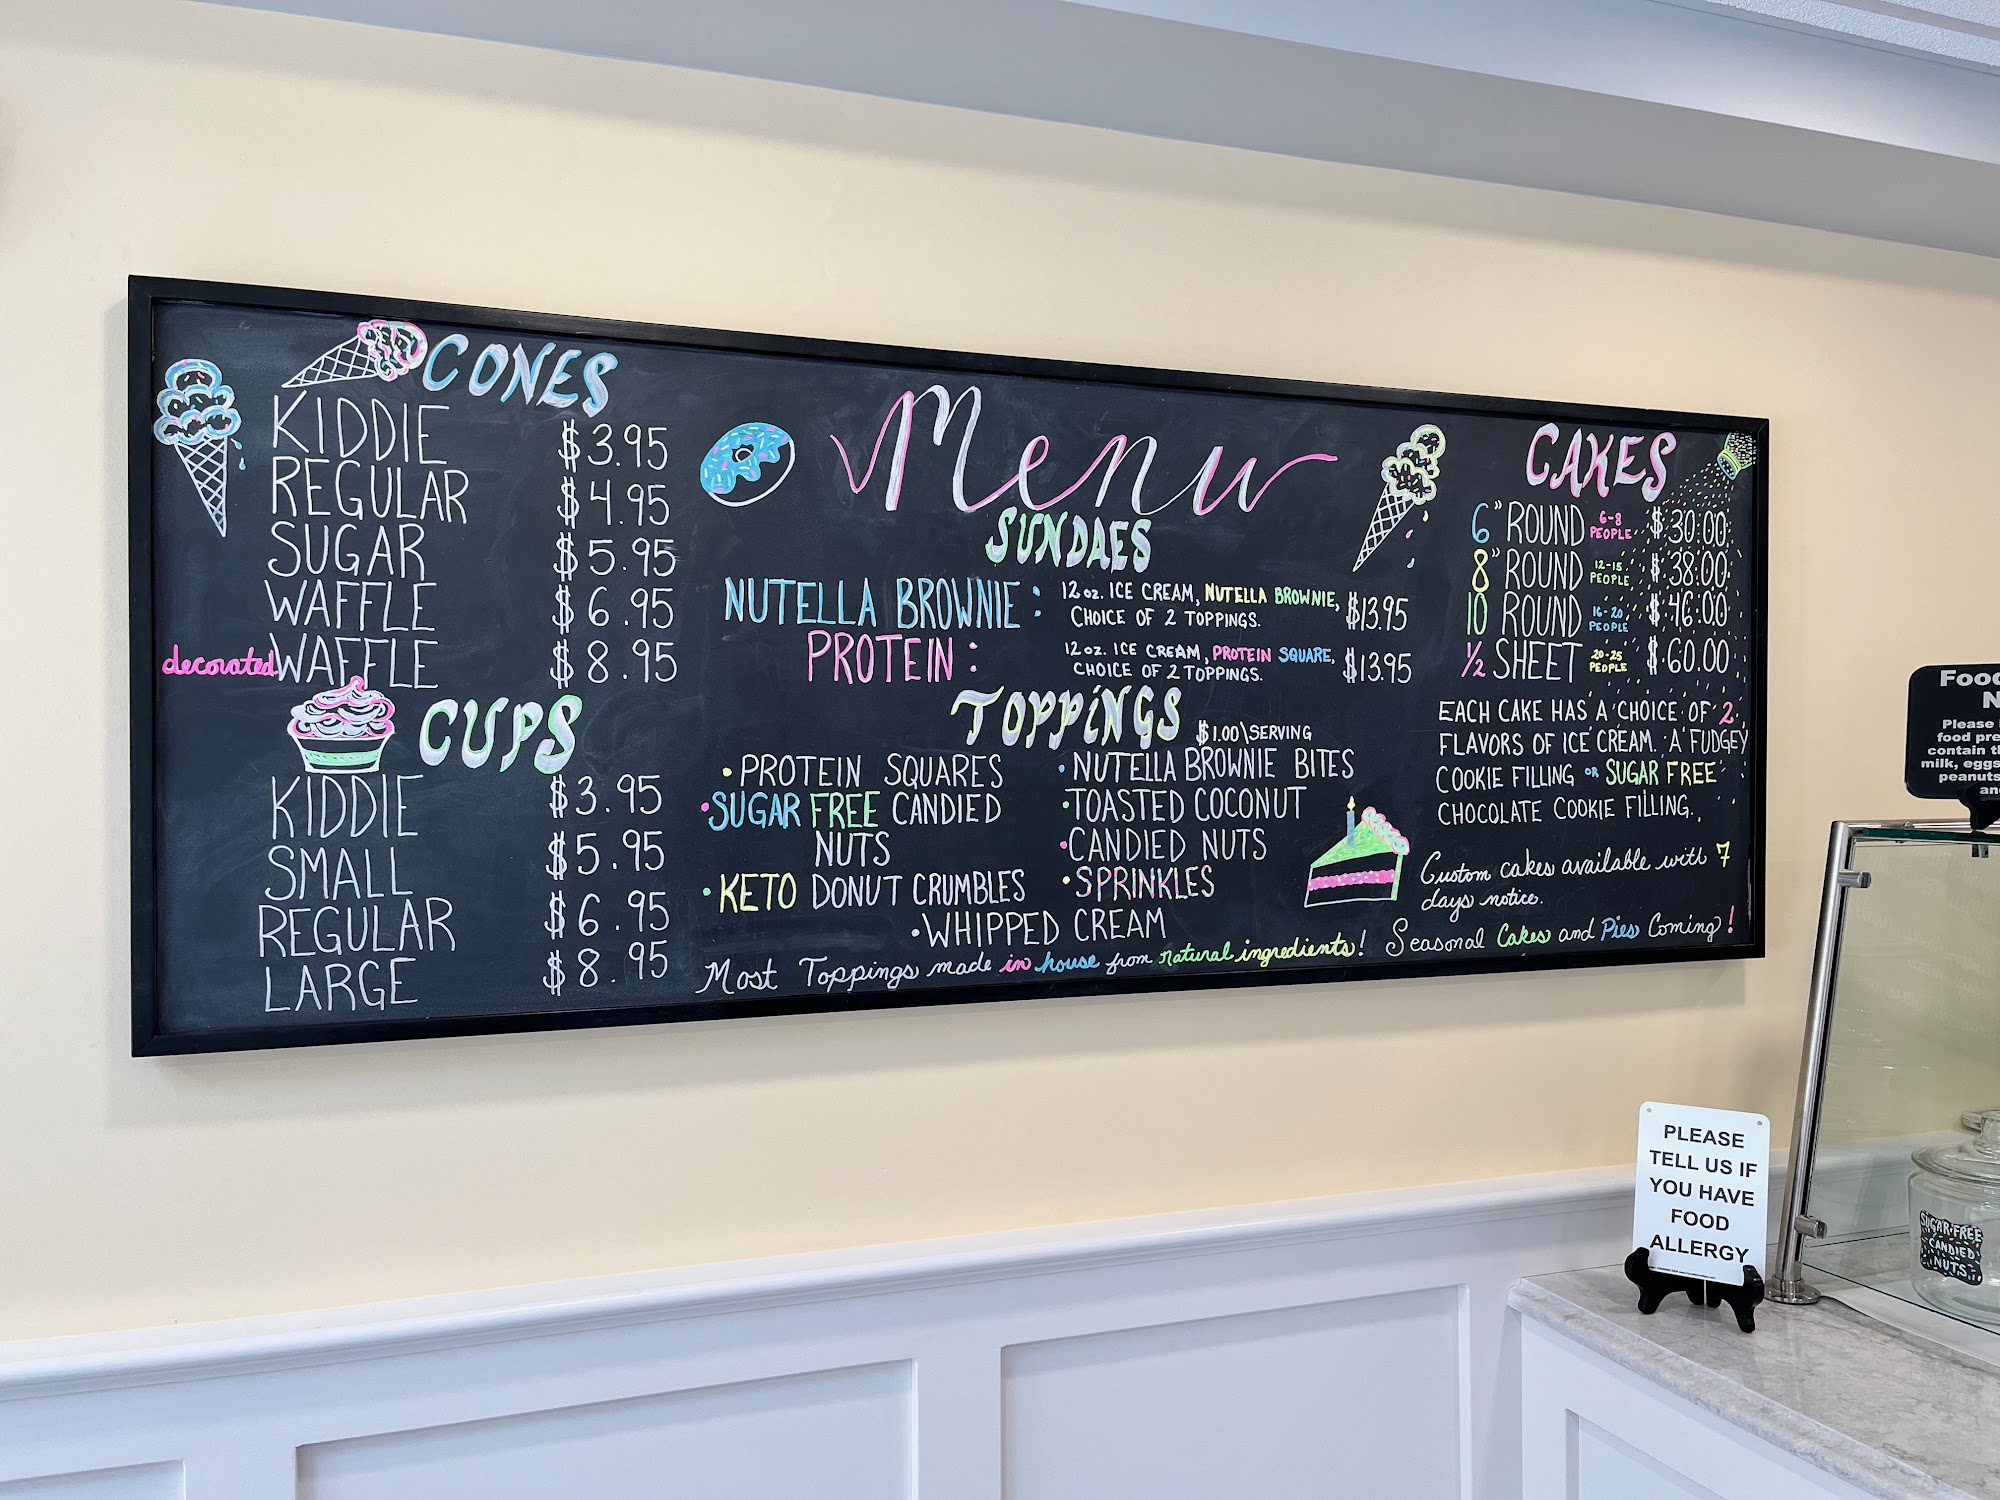 CONES
KIDDIE $3.95
REGULAR $4.95
SUGAR $5.95
WAFFLE $6.95
decorated WAFFLE $8.95
CUPS
KIDDIE $3.95
SMALL $5.95
REGULAR $6.95
LARGE $8.95
Menu
SUNDAES
NUTELLA BROWNIE: 12 oz. ICE CREAM, NUTELLA BROWNIE, $13.95
CHOICE OF 2 TOPPINGS.
PROTEIN: 12 oz. ICE CREAM, PROTEIN SQUARE, $13.95
CHOICE OF 2 TOPPINGS.
TOPPiNGS $1.00\SERVING
•PROTEIN SQUARES
•SUGAR FREE CANDIED
NUTS
•KETO DONUT CRUMBLES
•NUTELLA BROWNIE BITES
•TOASTED COCONUT
•CANDIED NUTS
•SPRINKLES
•WHIPPED CREAM
Most Toppings made in house from natural ingredients!
CAKES
6" ROUND 6-8 PEOPLE $30.00
8" ROUND 12-15 PEOPLE $38.00
10 ROUND 16-20 PEOPLE $46.00
1/2 SHEET 20-25 PEOPLE $60.00
EACH CAKE HAS A CHOICE OF 2
FLAVORS OF ICE CREAM. A FUDGEY
COOKIE FILLING OR SUGAR FREE
CHOCOLATE COOKIE FILLING.
Custom cakes available with 7
days notice.
Seasonal Cakes and Pies Coming!
Food
Please
food pre
contain th
milk, eggs
peanuts
an
PLEASE
TELL US IF
YOU HAVE
FOOD
ALLERGY
SUGAR FREE
CANDIED
NUTS